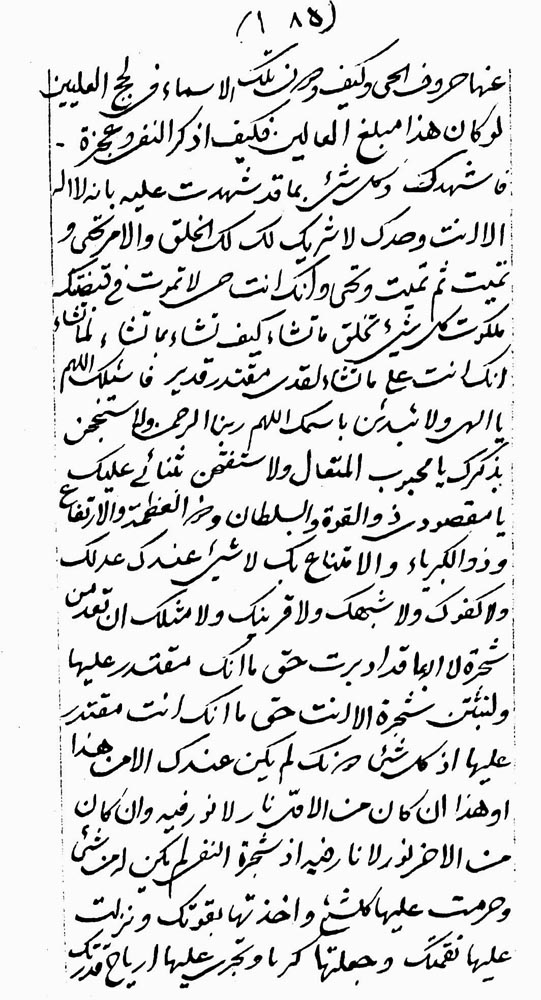 (١٨٥)
عنها حروف الحی وکیف وصف تلک الاسماء فی لجج العلیین
لو کان هذا مبلغ العالین فکیف اذکر النفی وعجزة
فاشهدک وکل شیء بما قد شهدت علیه بانه لا اله
الا انت وحدک لا شریک لک لک الخلق والامر تحیی و
تمیت ثم تمیت وتحیی وانک انت حی لا تموت فی قبضتک
ملکوت کل شیء تخلق ما تشاء کیف تشاء بما تشاء لما تشاء
انک انت علی ما تشاء لمقتدر قدیر فاسئلک اللهم
یا الهی ولا بسمک اللهم ربنا الرحمن ولا ستنجحن
بذکرک یا محبوب المتعال ولا ستفتحن بثنائی علیک
یا مقصودی ذو القوة والسلطان وذو العظمة والارتفاع
وذو الکبریاء والامتناع بک لا شیء عندک عدلک
ولا کفوک ولا شبهک ولا قرینک ولا مثلک ان تعد من
شجرة لا اله ما قد ادبرت حق ما انک مقتدر علیها
ولتثبتن شجرة الا انت حق ما انک انت مقتدر
علیها اذ کل شیء منک لم یکن عندک الا من هذا
او هذا ان کان من الاول نار لا نور فیه وان کان
من الاخر نور لا نار فیه اذ شجرة النفی لم یکن له من شیء
وحرمت علیها کلشیء واخذتها بقوتک ونزلت
علیها نقمتک وجعلتها کرماد تجری علیها اریاح قدرتک